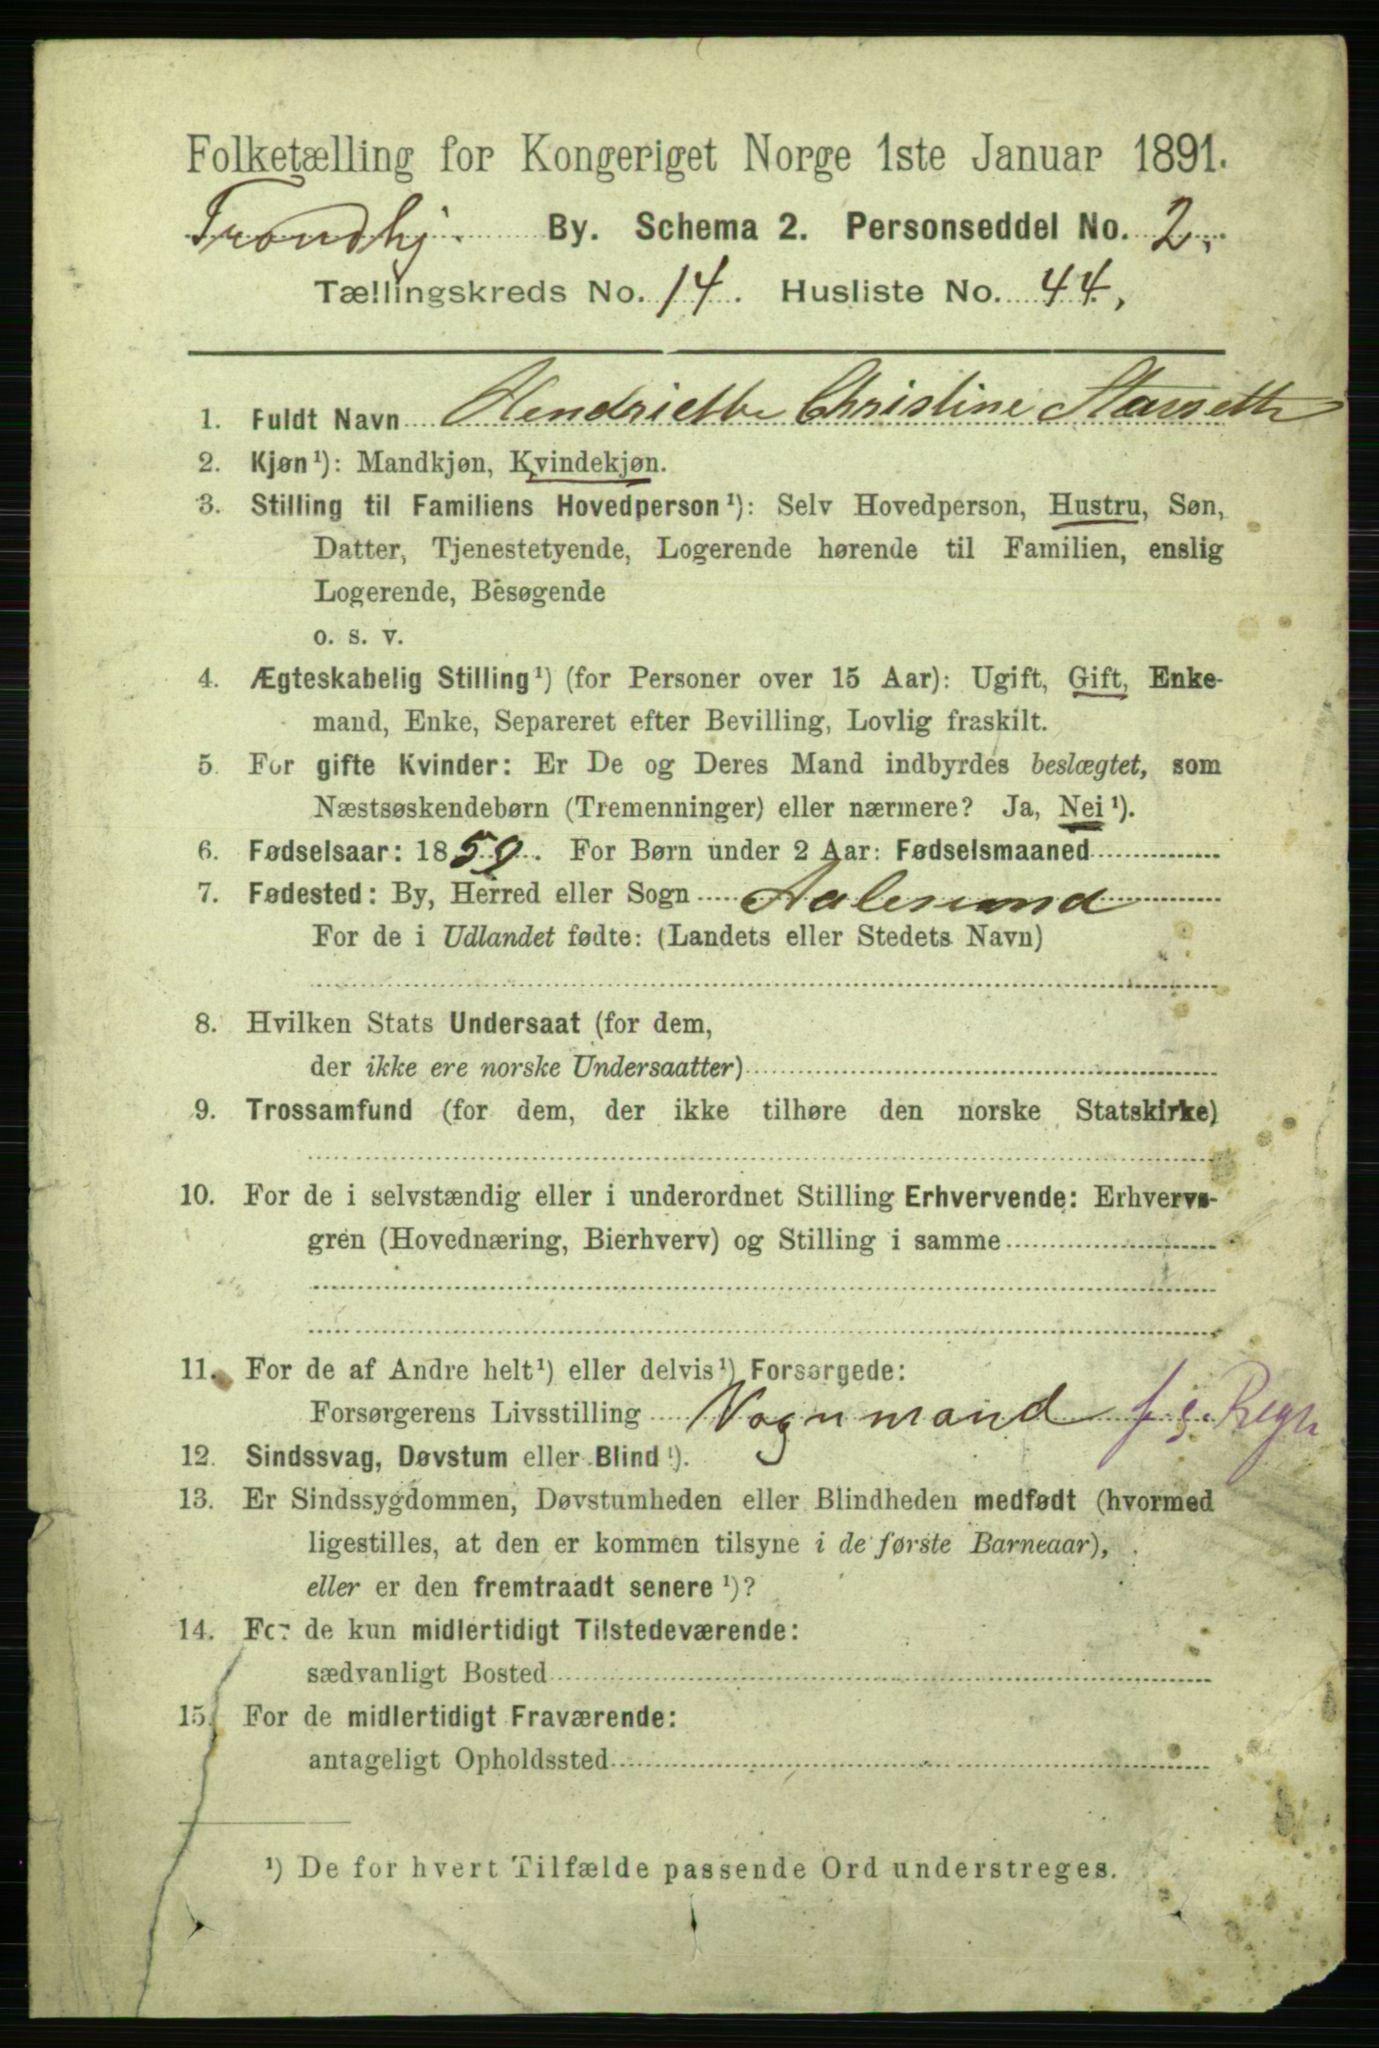 Folketælling for Kongeriget Norge 1ste Januar 1891.
Trondhj. By. Schema 2. Personseddel No. 2.
Tællingskreds No. 14. Husliste No. 44.
1. Fuldt Navn Hendriette Christine
2. Kjøn¹): Mandkjøn, Kvindekjøn.
3. Stilling til Familiens Hovedperson¹): Selv Hovedperson, Hustru, Søn,
Datter, Tjenestetyende, Logerende hørende til Familien, enslig
Logerende, Besøgende
o. s. v.
4. Ægteskabelig Stilling¹) (for Personer over 15 Aar): Ugift, Gift, Enke-
mand, Enke, Separeret efter Bevilling, Lovlig fraskilt.
5. For gifte Kvinder: Er De og Deres Mand indbyrdes beslægtet, som
Næstsøskendebørn (Tremenninger) eller nærmere? Ja, Nei¹).
6. Fødselsaar: 1859. For Børn under 2 Aar: Fødselsmaaned
7. Fødested: By, Herred eller Sogn Aalesund
For de i Udlandet fødte: (Landets eller Stedets Navn)
8. Hvilken Stats Undersaat (for dem,
der ikke ere norske Undersaatter)
9. Trossamfund (for dem, der ikke tilhøre den norske Statskirke)
10. For de i selvstændig eller i underordnet Stilling Erhvervende: Erhvervs-
gren (Hovednæring, Bierhverv) og Stilling i samme
11. For de af Andre helt¹) eller delvis¹) Forsørgede:
Forsørgerens Livsstilling Vognmand f. e. Regn
12. Sindssvag, Døvstum eller Blind¹).
13. Er Sindssygdommen, Døvstumheden eller Blindheden medfødt (hvormed
ligestilles, at den er kommen tilsyne i de første Barneaar),
eller er den fremtraadt senere¹)?
14. For de kun midlertidigt Tilstedeværende:
sædvanligt Bosted
15. For de midlertidigt Fraværende:
antageligt Opholdssted
¹) De for hvert Tilfælde passende Ord understreges.